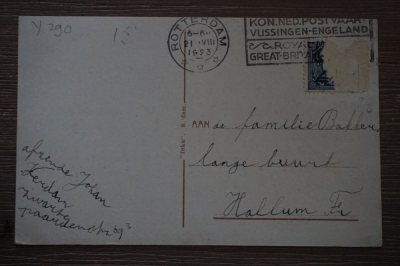 Y 290
15
ROTTERDAM
21 VIII
1933
KON.NED.POSTVAART
VLISSINGEN-ENGELAND
ROYAL
GREAT-BRI
AAN de familie Bakker
lange buurt
Hallum Fr
"Inka" A-dam.
afzende Johan
Zwarte
paardenstr